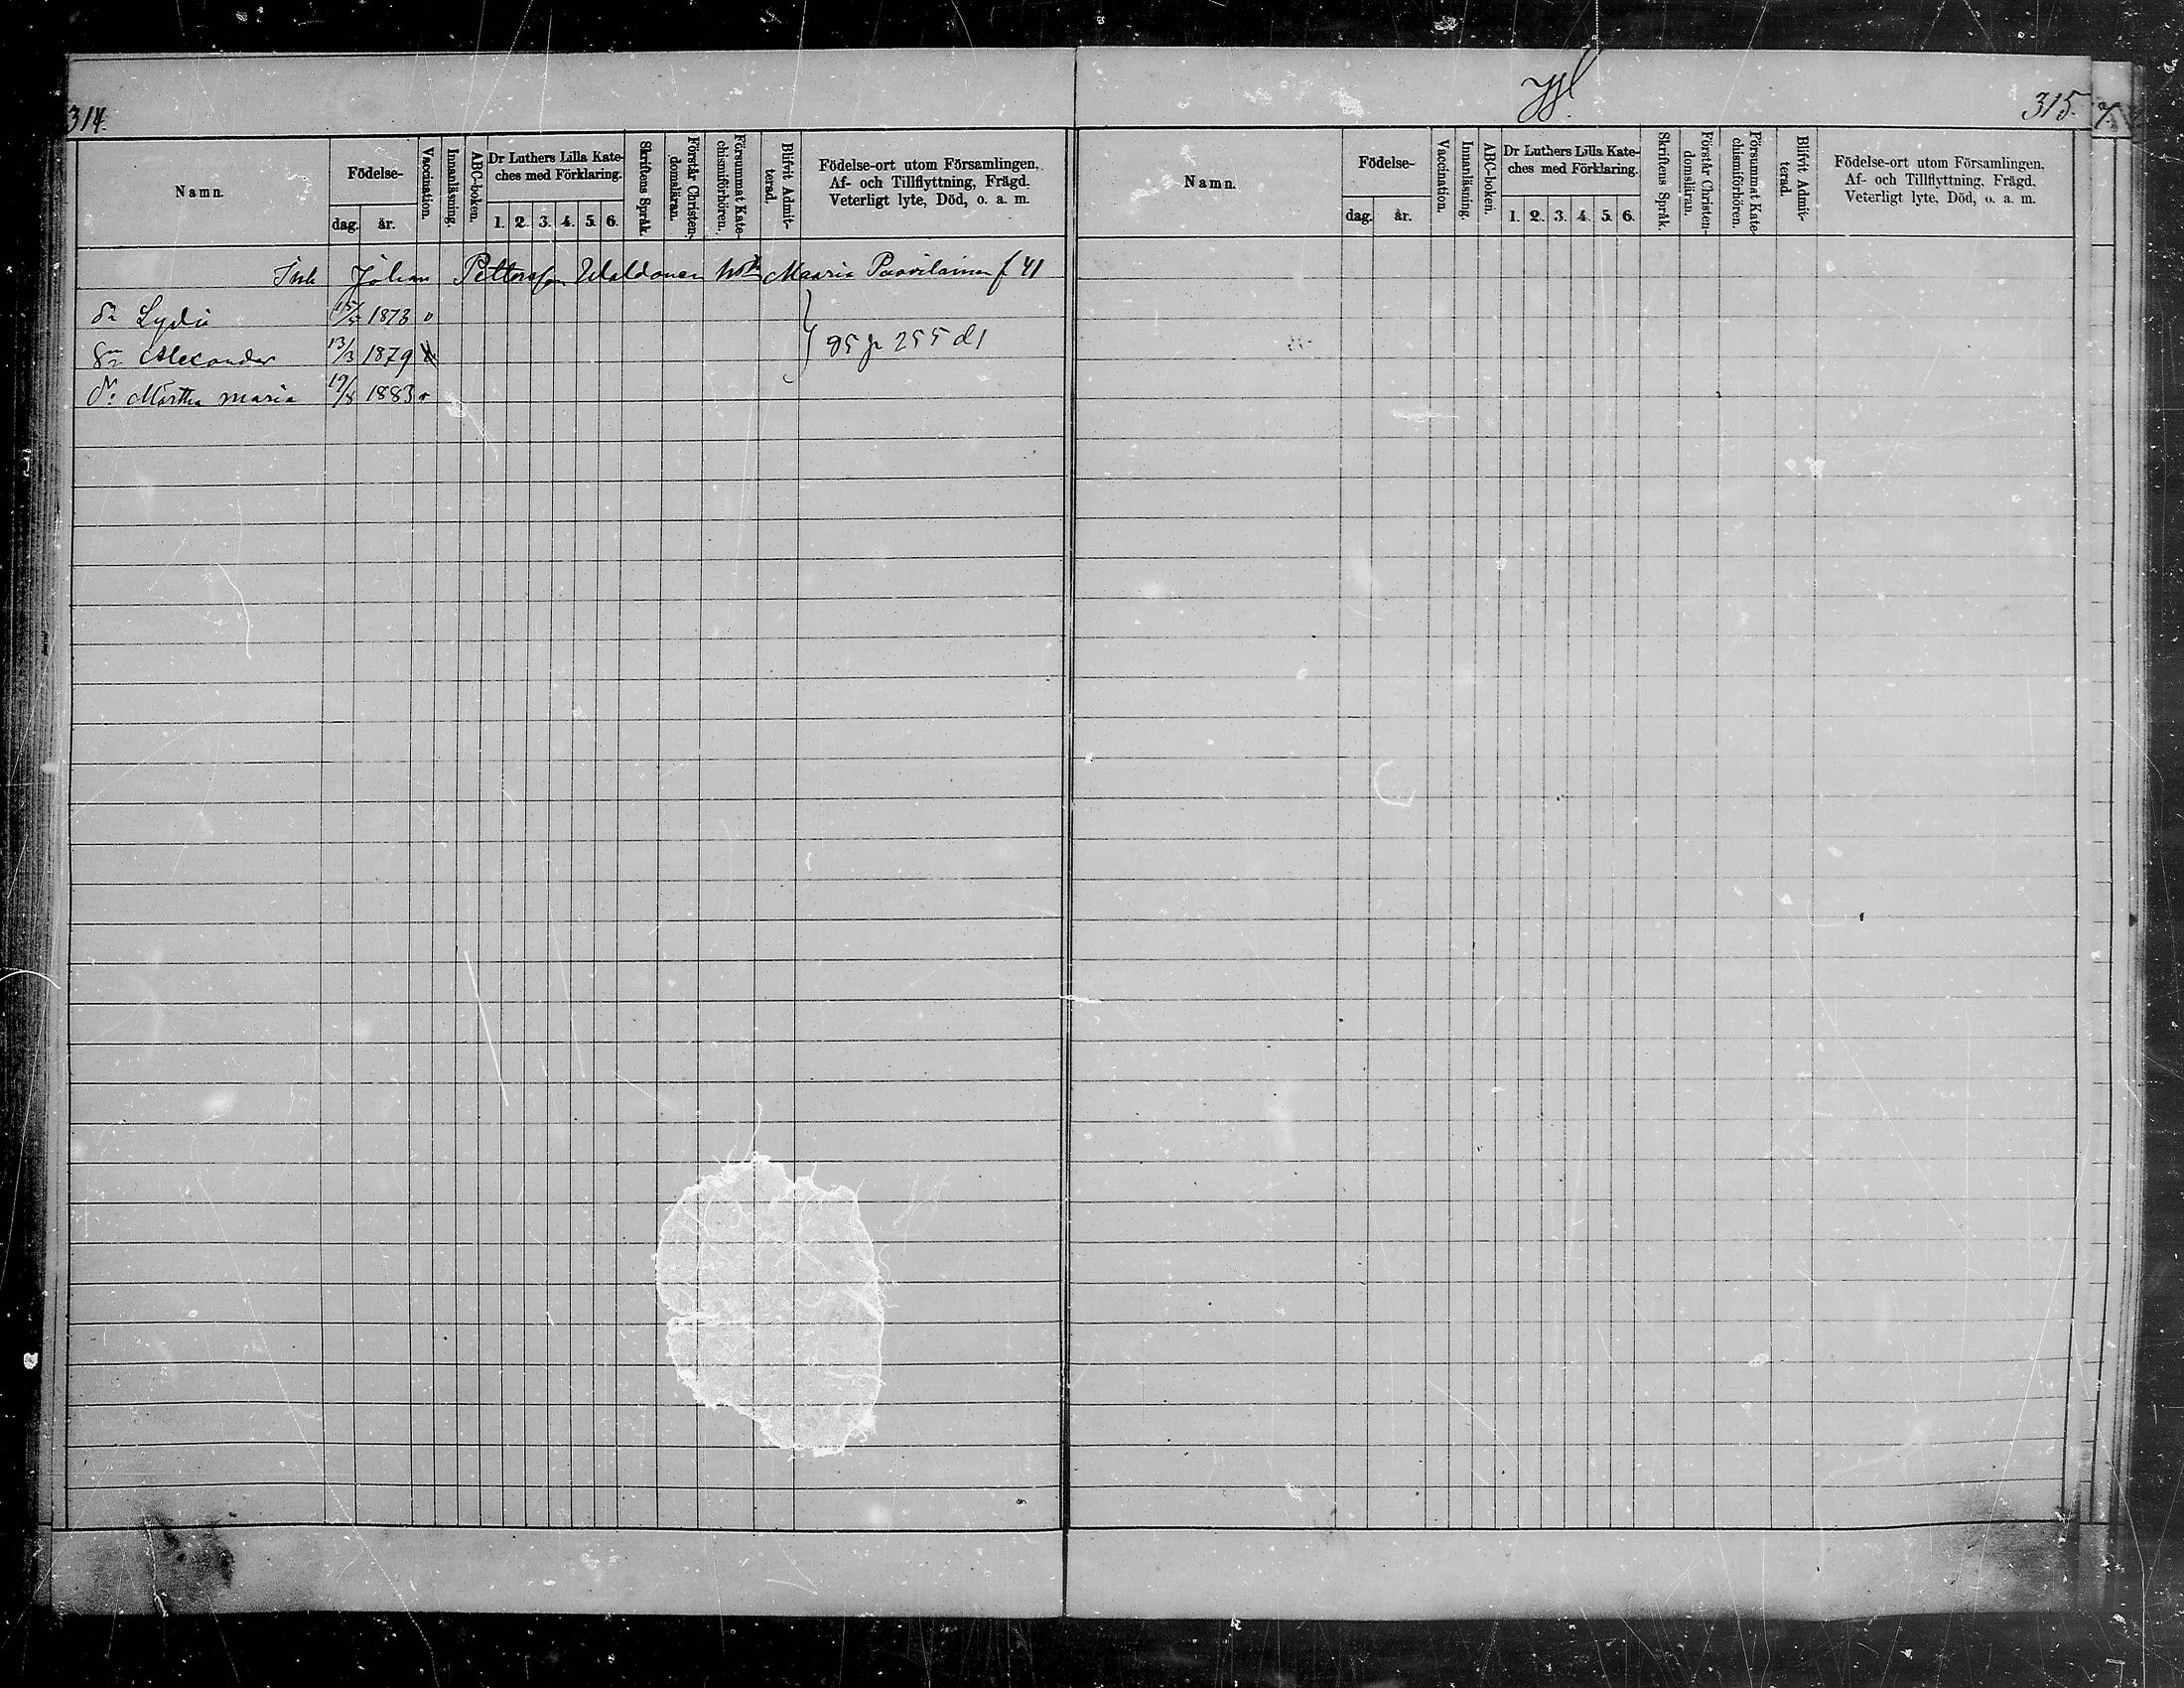 314.
Namn.
Födelse-
dag.
år.
Vaccination.
Innanläsning.
ABC-boken.
Dr Luthers Lilla Kate-
ches med Förklaring.
1. 2. 3. 4. 5. 6.
Skriftens Språk.
Förstår Christen-
domsläran.
Försummat Kate-
chismiförhören.
Blifvit Admit-
terad.
Födelse-ort utom Församlingen.
Af- och Tillflyttning, Frägd.
Veterligt lyte, Död, o. a. m.
Inh Johan Pettersson Waldonen Maaria Paavilainen f 41
dr Lydia 15/5 1873 v
Sn Alexander 13/3 1879
95 p 255 d1
dr Martha maria 19/8 1883 v
315.
Namn.
Födelse-
dag.
år.
Vaccination.
Innanläsning.
ABC-boken.
Dr Luthers Lilla Kate-
ches med Förklaring.
1. 2. 3. 4. 5. 6.
Skriftens Språk.
Förstår Christen-
domsläran.
Försummat Kate-
chismiförhören.
Blifvit Admit-
terad.
Födelse-ort utom Församlingen.
Af- och Tillflyttning, Frägd.
Veterligt lyte, Död, o. a. m.